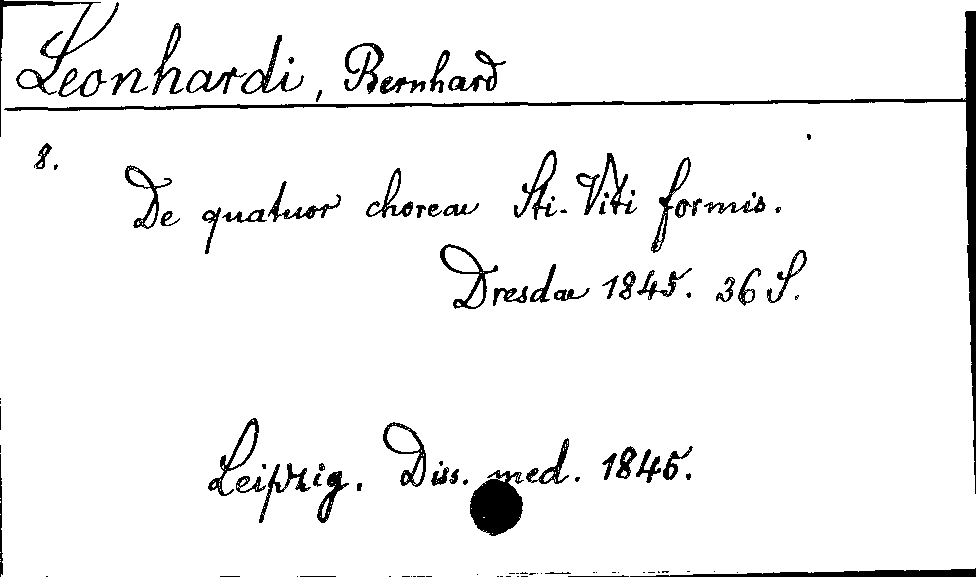 Leonhardi, Bernhard
8.
De quatuor choreae Sti. Viti formis.
Dresdae 1845. 36 S.
Leipzig. Diss. med. 1845.